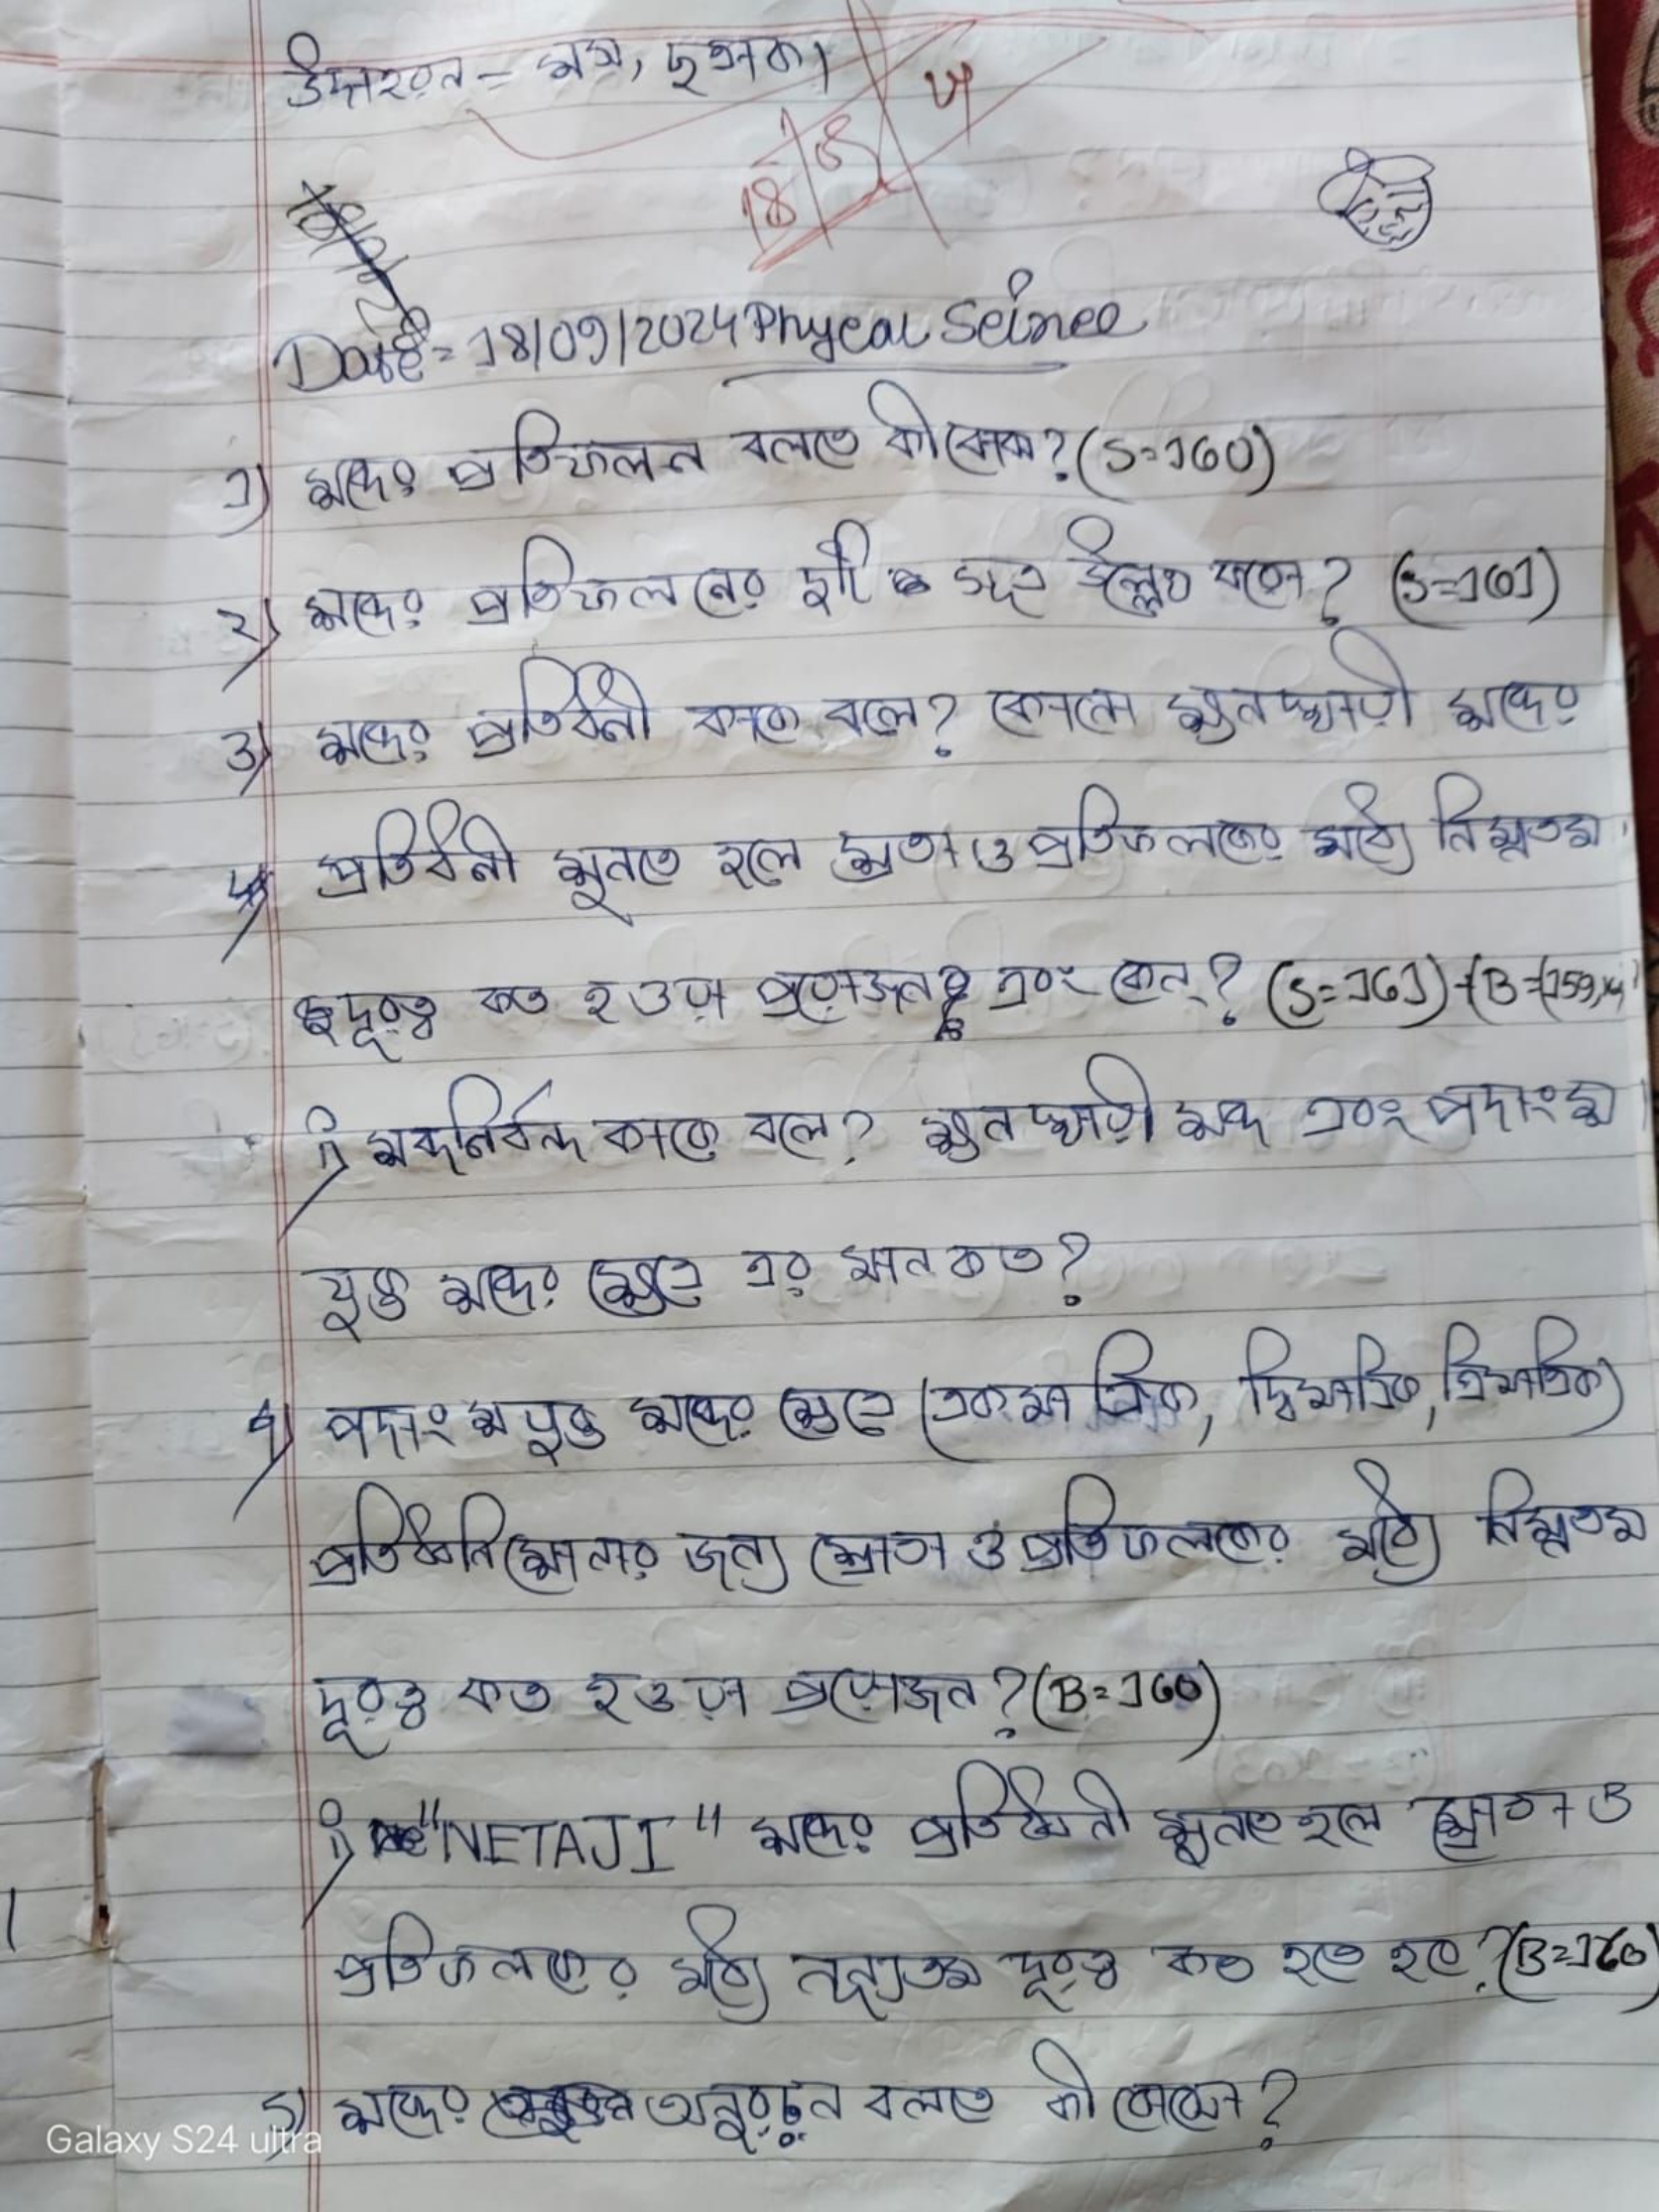 উদাহরন - মস, ছত্রাক।
18/9
Date = 18/09/2024 Phycal Seince
১) শব্দের প্রতিফলন বলতে কী বোঝ? (S=160)
২) শব্দের প্রতিফলনের দুটি সূত্র উল্লেখ করো? (S=161)
৩) শব্দের প্রতিধ্বনী কাকে বলে? কোনো ক্ষনস্থায়ী শব্দের
প্রতিধ্বনী শুনতে হলে শ্রোতা ও প্রতিফলকের মধ্যে নিম্নতম
দূরত্ব কত হওয়া প্রয়োজন এবং কেন? (S=161) + (B=159,
i) শব্দনির্বন্দ কাকে বলে? ক্ষনস্থায়ী শব্দ এবং পদাংশ
যুক্ত শব্দের ক্ষেত্রে এর মান কত?
৭) পদাংশ যুক্ত শব্দের ক্ষেত্রে (একমাত্রিক, দ্বিমাত্রিক, ত্রিমাত্রিক)
প্রতিধ্বনি শোনার জন্য শ্রোতা ও প্রতিফলকের মধ্যে নিম্নতম
দূরত্ব কত হওয়া প্রয়োজন? (B=160)
i) "NETAJI" শব্দের প্রতিধ্বনী শুনতে হলে শ্রোতা ও
প্রতিফলকের মধ্যে নূন্যতম দূরত্ব কত হতে হবে? (B=160)
৫) শব্দের অনুরনন বলতে কী বোঝো?
Galaxy S24 ultra